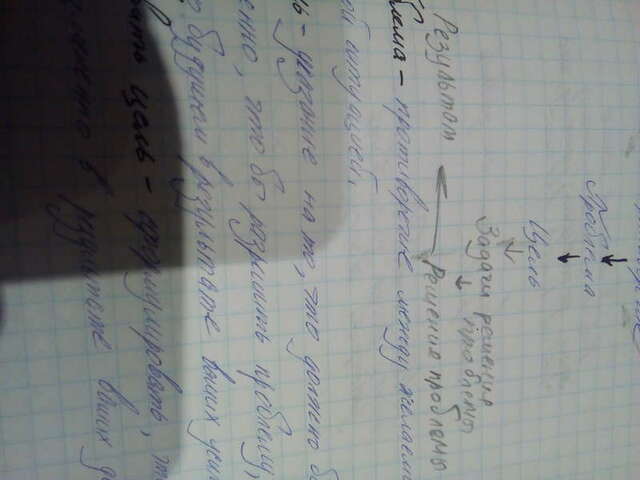 Проблема
Цель
Задачи решения
проблемы
Решение проблемы
Результат
блема - противоречие между желаемо
ой ситуацией.
ль - указание на то, что должно б
енно, что бы разрешить проблему,
о будущем в результате ваших уси
вить цель - сформулировать, чт
в результате ваших де